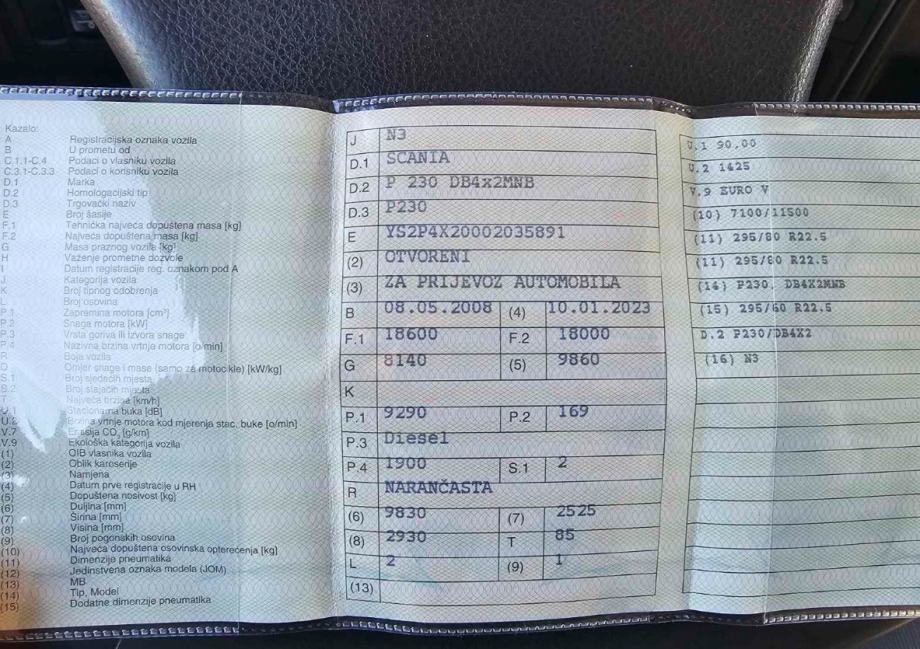 Kazalo:
A Registracijska oznaka vozila
B U prometu od
C.1.1-C.4 Podaci o vlasniku vozila
C.3.1-C.3.3 Podaci o korisniku vozila
D.1 Marka
D.2 Homologacijski tip
D.3 Trgovački naziv
E Broj šasije
F.1 Tehnička najveća dopuštena masa [kg]
F.2 Najveća dopuštena masa [kg]
G Masa praznog vozila [kg]
H Važenje prometne dozvole
I Datum registracije reg. oznakom pod A
J Kategorija vozila
K Broj tipnog odobrenja
L Broj osovina
P.1 Zapremina motora [cm³]
P.2 Snaga motora [kW]
P.3 Vrsta goriva ili izvora snage
P.4 Nazivna brzina vrtnje motora [o/min]
R Boja vozila
Omjer snage i mase (samo za motocikle) [kW/kg]
S.1 Broj sjedećih mjesta
S.2 Broj stajaćih mjesta
T Najveća brzina [km/h]
U.1 Stacionarna buka [dB]
U.2 Brzina vrtnje motora kod mjerenja stac. buke [o/min]
V.7 Emisija CO₂ [g/km]
V.9 Ekološka kategorija vozila
(1) OIB vlasnika vozila
(2) Oblik karoserije
(3) Namjena
(4) Datum prve registracije u RH
(5) Dopuštena nosivost [kg]
(6) Duljina [mm]
(7) Širina [mm]
(8) Visina [mm]
(9) Broj pogonskih osovina
(10) Najveća dopuštena osovinska opterećenja [kg]
(11) Dimenzije pneumatika
(12) Jedinstvena oznaka modela (JOM)
(13) MB
(14) Tip, Model
(15) Dodatne dimenzije pneumatika
J N3
D.1 SCANIA
D.2 P 230 DB4x2MNB
D.3 P230
E YS2P4X20002035891
(2) OTVORENI
(3) ZA PRIJEVOZ AUTOMOBILA
B 08.05.2008 (4) 10.01.2023
F.1 18600 F.2 18000
G 8140 (5) 9860
K
P.1 9290 P.2 169
P.3 Diesel
P.4 1900 S.1 2
R NARANČASTA
(6) 9830 (7) 2525
(8) 2930 T 85
L 2 (9) 1
(13)
U.1 90.00
U.2 1425
V.9 EURO V
(10) 7100/11500
(11) 295/80 R22.5
(11) 295/80 R22.5
(14) P230, DB4X2MNB
(15) 295/60 R22.5
D.2 P230/DB4X2
(16) N3